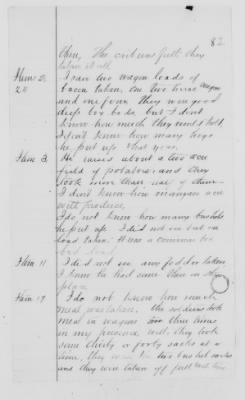 82
then. The crib was full they
taken it all
Item 2. I saw two wagon loads of
Bacon taken, one two horse wagon
and one four. They were good
deep box beds, but I didn't
know how much they would hold
I didn't know how many hogs
he put up that year.
Item 3. He raises about a two acre
field of potatoes and they
took more than one of them.
I didn't know how many
with produce,
I do not know how many bushels
he put up. I did not see but one
load taken. It was a common
Item 11 I did not see any fodder taken
I know he had some there in the
place
Item 17 I do not know how much
meal was taken. The soldiers took
meal in wagons two times
in my presence. They took
some thirty or forty sacks at a
time, they were two bushel sacks
and they were taken off full